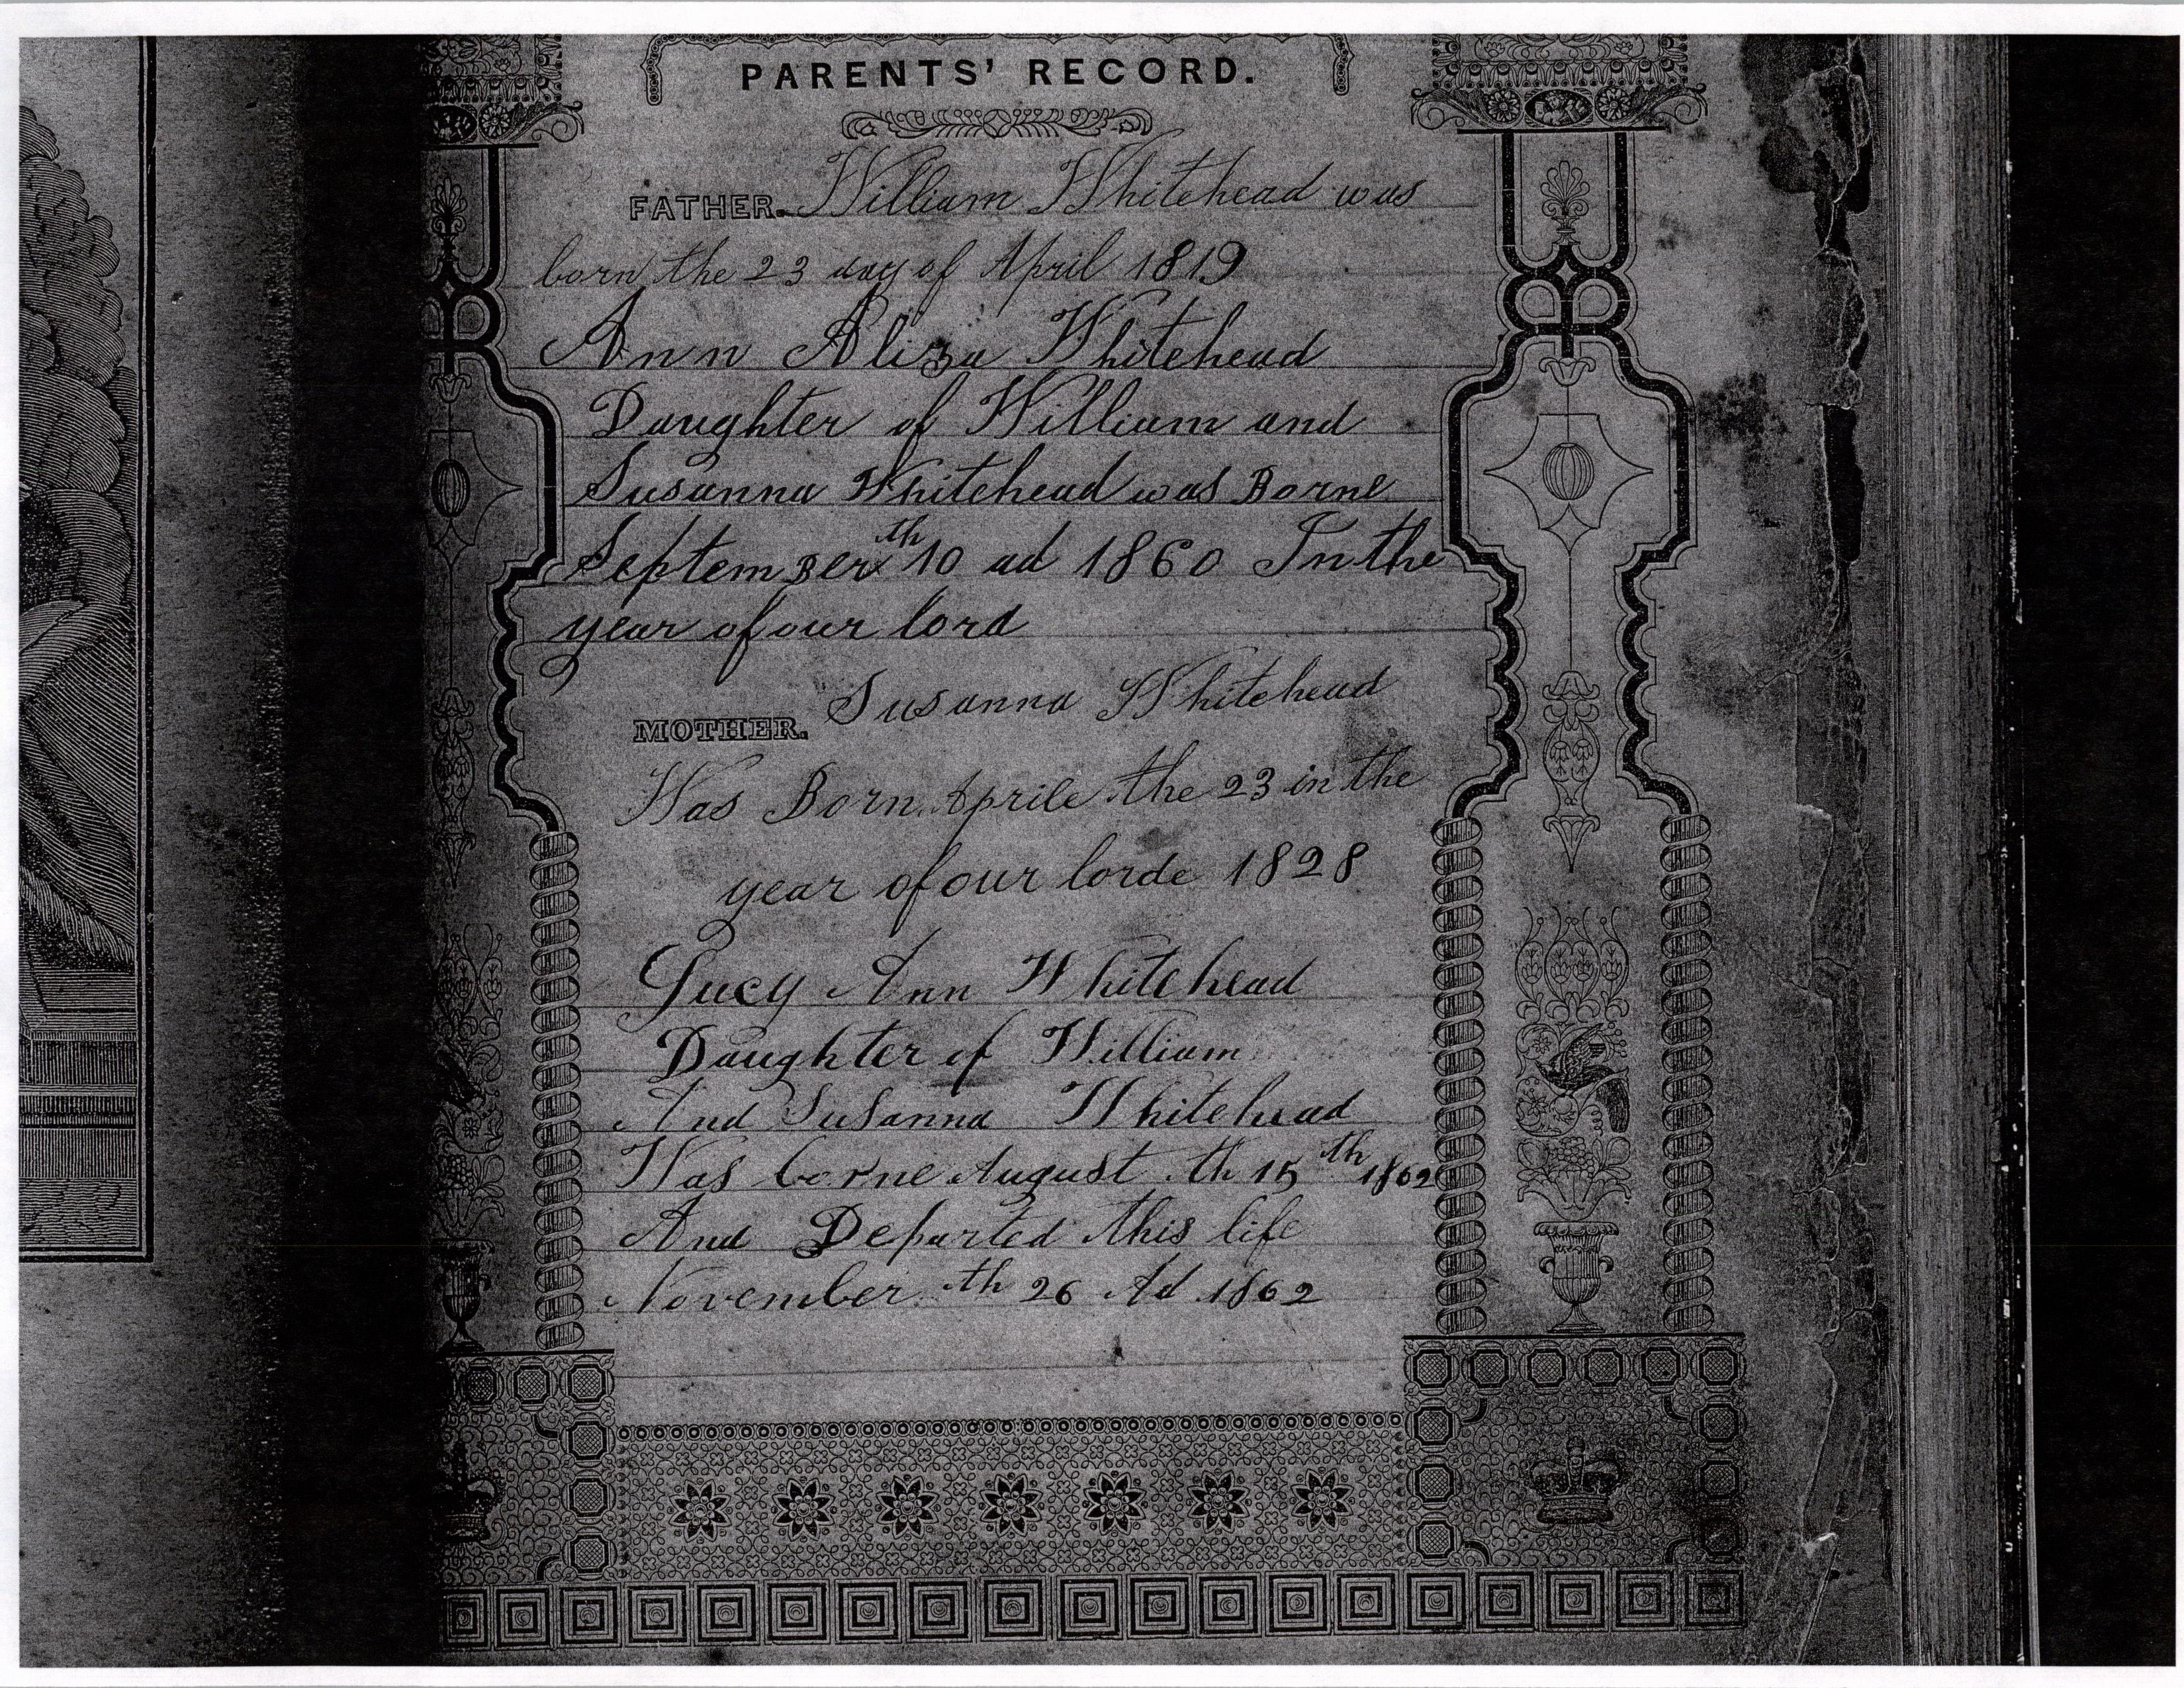 PARENTS' RECORD.
FATHER. William Whitehead was
born the 23 day of April 1819
Ann Aliza Whitehead
Daughter of William and
Susanna Whitehead was Borne
September th 10 ad 1860 In the
year of our lord
MOTHER. Susanna Whitehead
Was Born Aprile the 23 in the
year of our lorde 1828
Lucy Ann Whitehead
Daughter of William
And Susanna Whitehead
Was borne August th 15th 1862
And Departed this life
November th 26 Ad 1862